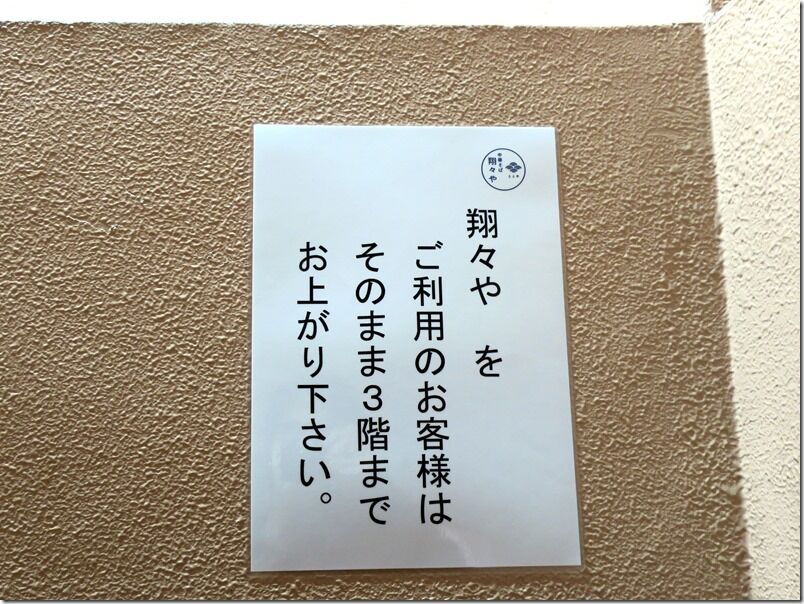 中華そば
翔々や
翔々や を
ご利用のお客様は
そのまま３階まで
お上がり下さい。